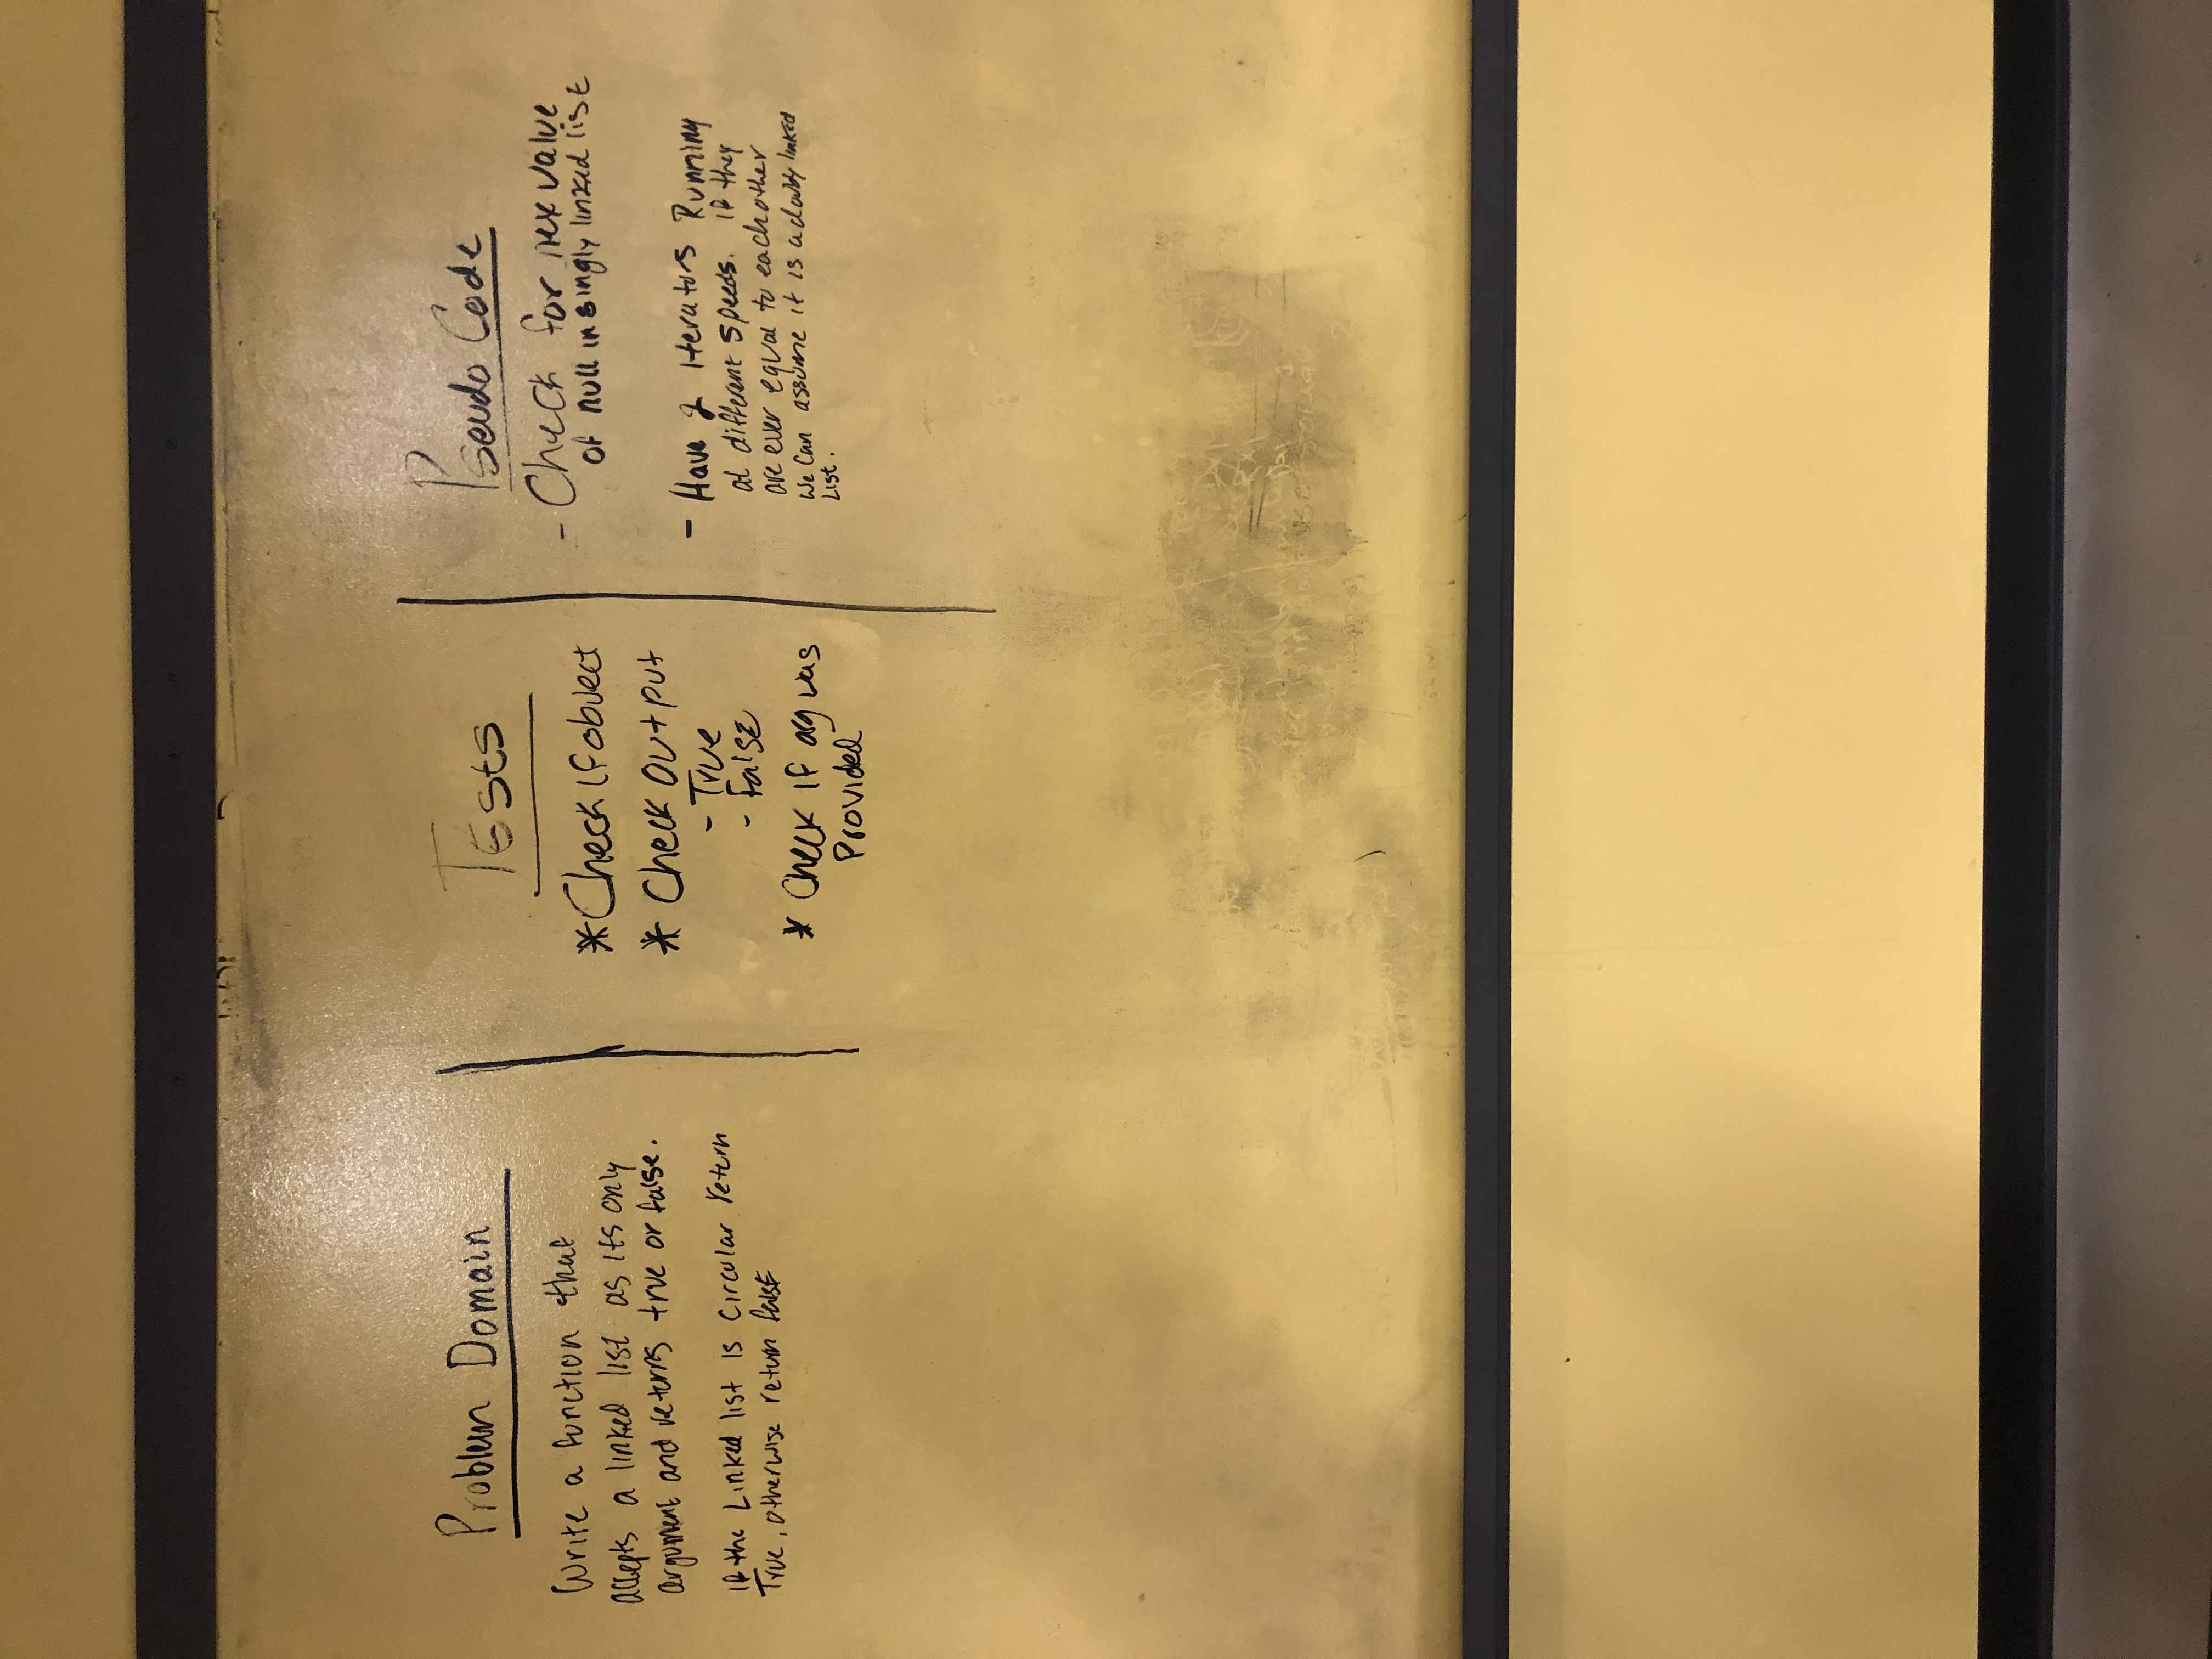 Problem Domain
Write a function that
accepts a linked list as its only
argument and returns true or false.
If the Linked list is Circular return
True, otherwise return false
Tests
* Check if object
* Check Output
- True
- False
* Check if arg was
Provided
Pseudo Code
- Check for nex value
of null in singly linked list
- Have 2 iterators Running
at different speeds. If they
are ever equal to eachother
we can assume it is a doubly linked
List.